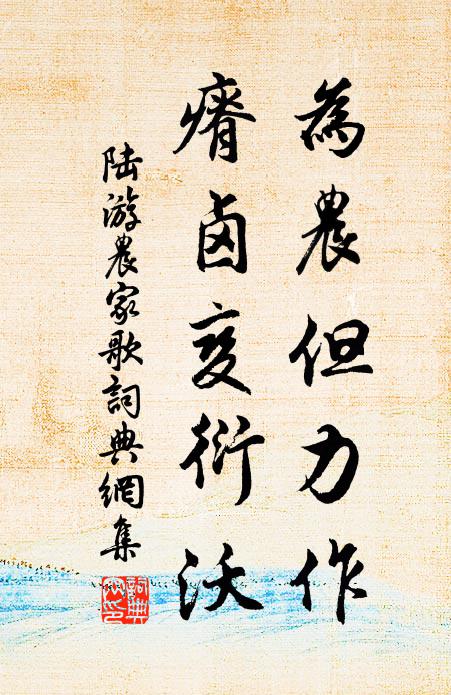 為農但力作
瘠卤变衍沃
陆游農家歌詞典網集